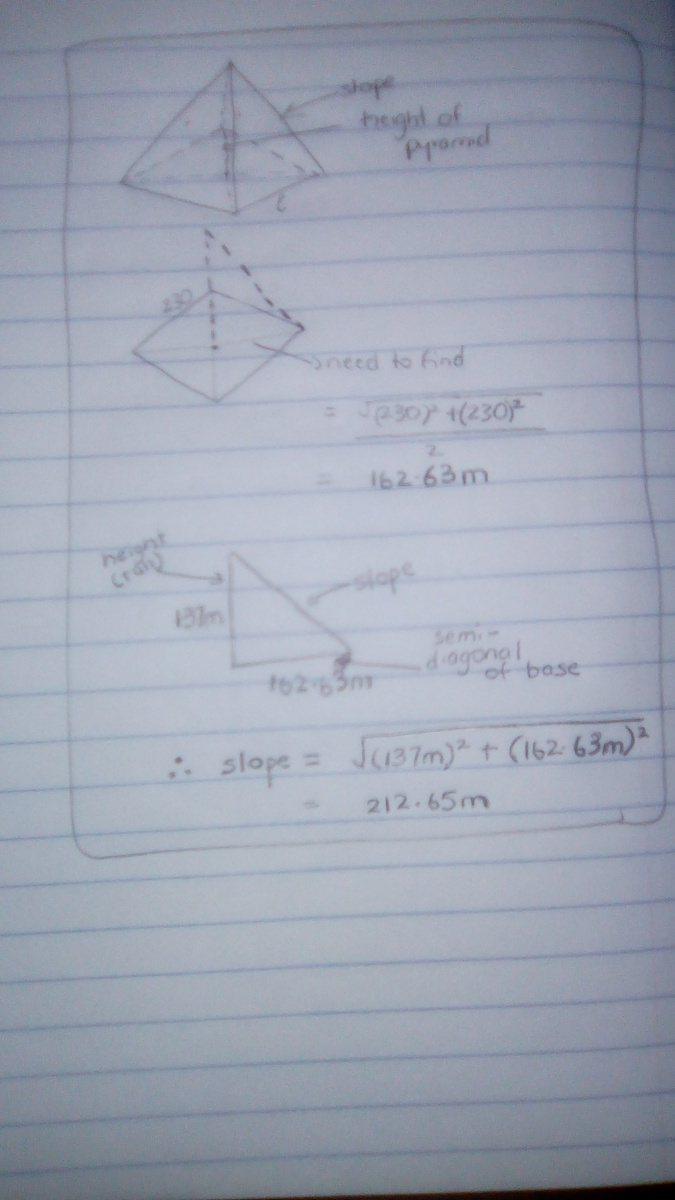 slope
height of
pyramid
l
230
need to find
= √(230)² + (230)²
2
= 162.63m
height
137m
slope
semi-
diagonal
of base
162.63m
∴ slope = √(137m)² + (162.63m)²
= 212.65m